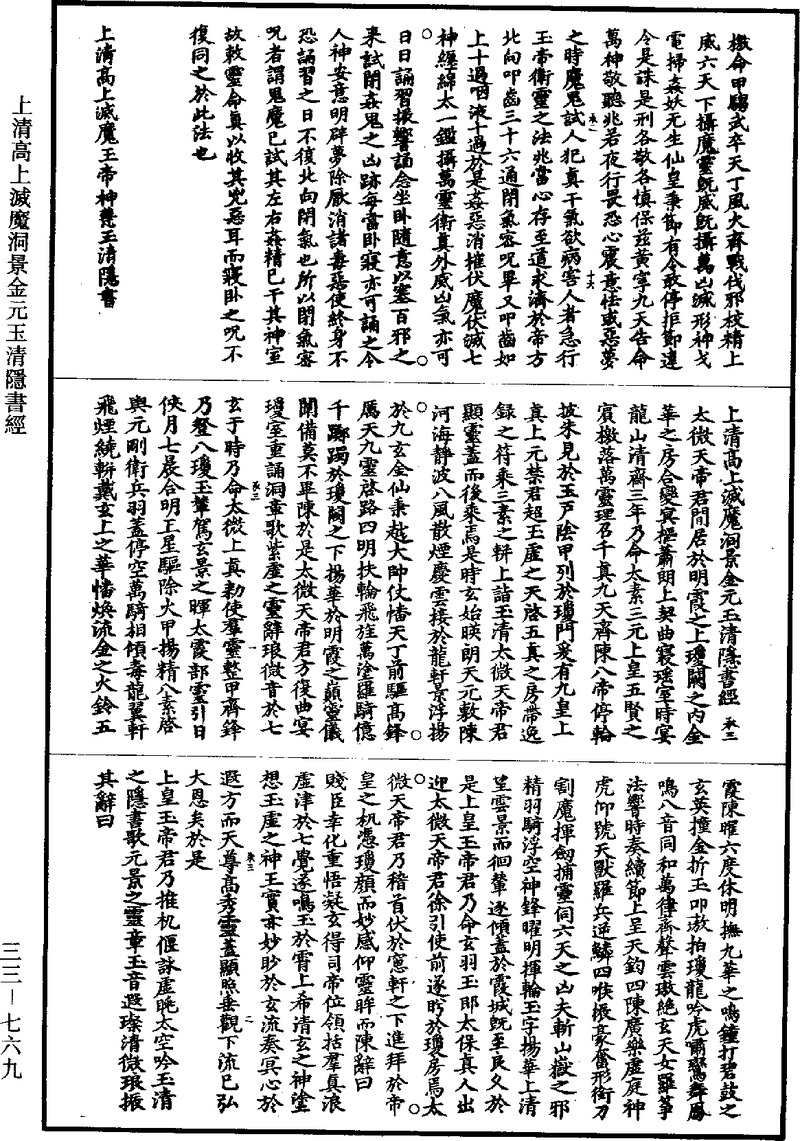 檄命甲騶武卒天丁風火齊戰伐邪校精上
威六天下攝魔靈既威既攝萬凶滅形神戈
電掃姦妖无生仙皇秉節有令敢停拒節違
令是誅是刑各敬各慎保茲黃寧九天告命
萬神敬聽兆若夜行畏恐心震意怯或惡夢
之時魔鬼試人犯真干氣欲病客人者急行
玉帝衛靈之法兆當心存至道求濟於帝方
北向叩齒三十六通閉氣密呪畢又叩齒如
上十過咽液十過於是姦惡消摧伏魔伏滅七
神經綿太一鑑攝萬靈衛真外威凶氣亦可
日日誦習振響誦念坐卧隨意以塞百邪之
來試閉姦鬼之凶跡每當卧寢亦可誦之令
人神安意明辟夢除厭消諸毒惡使終身不
恐誦習之日不復北向閉氣也所以閉氣密
呪者謂鬼魔已試其左右姦精已干其神室
故敕靈命真以收其兇惡耳而寢卧之呪不
復同之於此法也
上清高上滅魔玉帝神慧玉清隱書
上清高上滅魔洞景金元玉清隱書經
太微天帝君閒居於明霞之上瓊闕之内金
華之房合變冥樞蕭朗上契曲寢瑶室時宴
龍山清齋三年乃命太素三元上皇五賢之
賓檄落萬靈理召千真九天齊陳八帝停輪
披朱見於玉戸陰甲列於瓊門爰有九皇上
真上元禁君超玉虛之天啓五真之房帶逸
録之符乘三素之軿上詣玉清太微天帝君
顯靈蓋而後乘焉是時玄始暎朗天元敷陳
河海静波八風散煙慶雲接於龍軒景浮揚
於九玄金仙秉越大帥仗幡天丁前驅高鋒
厲天九靈啓路四明扶輪飛旌萬塗羅騎億
千躑躅於瓊闕之下揚華於明霞之巔靈儀
闡備莫不畢陳於是太微天帝君方復曲宴
瓊室重誦洞章歌紫虛之靈辭琅微音於七
玄于時乃命太微上真勑使羣靈整甲齊鋒
乃登八瓊玉輦駕玄景之暉太霞部靈引日
俠月七晨合明王星驅除火甲揚精八素啓
輿元剛衛兵羽蓋停空萬騎相傾毒龍翼軒
飛煙繞軿戴玄上之華幡煥流金之火鈴五
霞陳曜六度休明撫九華之鳴鐘打碧鼓之
玄英撞金折玉叩璈拍瓊龍吟虎嘯鸞舞鳳
鳴八音同和萬律齊聲雲璈絶玄天女羅筝
法響時奏續節上呈天鈞四陳廣樂虛庭神
虎仰號天獸羅兵逆鱗四喉掖豪奮形銜刀
割魔揮劔捕靈伺六天之凶夫斬山嶽之邪
精羽騎浮空神鋒曜明揮輪玉宇揚華上清
望雲景而徊輦遂傾蓋於霞城既至良久於
是上皇玉帝君乃命玄羽玉郎太保真人出
迎太微天帝君徐引使前遂眄於瓊房焉太
微天帝君乃稽首伏於窓軒之下進拜於帝
皇之机憑瓊顔而妙感仰靈眸而陳辭曰
賤臣幸化重悟凝玄得司帝位領括羣真浪
虛津於七覺遂鳴玉於霄上希清玄之神塗
想玉虛之神王實亦妙眇於玄流奏冥心於
遐方而天尊高秀靈蓋顯照垂觀下流已弘
大恩矣於是
上皇玉帝君乃推机偃詠虛眺太空吟玉清
之隱書歌元景之靈章玉音遐璨清微琅振
其辭曰
上清高上滅魔洞景金元玉清隱書經
三三－七六九